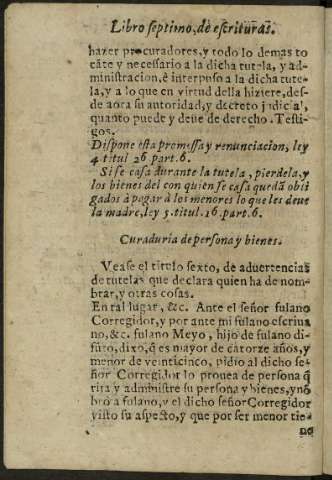 Libro septimo, de escrituras.
hazer procuradores, y todo lo demas to
cãte y necessario a la dicha tutela, y ad-
ministracion, è interpuso a la dicha tute-
la, y a lo que en virtud della hiziere, des-
de aora su autoridad, y decreto judicial,
quanto puede y deue de derecho. Testi-
gos.
Dispone esta promessa y renunciacion, ley
4. titul 26. part. 6.
Si se casa durante la tutela, pierdela, y
los bienes del con quien se casa quedã obli
gados à pagar à los menores lo que les deue
la madre, ley 5. titul. 16. part. 6.
Curaduria de persona y bienes.
Vease el titulo sexto, de aduertencias
de tutelas que declara quien ha de nom-
brar, y otras cosas.
En tal lugar, &c. Ante el señor fulano
Corregidor, y por ante mi fulano escriua
no, &c. fulano Meyo, hijo de fulano di-
futo, dixo, q̃ es mayor de catorze años, y
menor de veinticinco, pidio al dicho se-
ñor Corregidor lo prouea de persona q̃
rija y administre su persona y bienes, y nõ
brò a fulano, y el dicho señor Corregidor
visto su aspecto, y que por ser menor tie-
ne